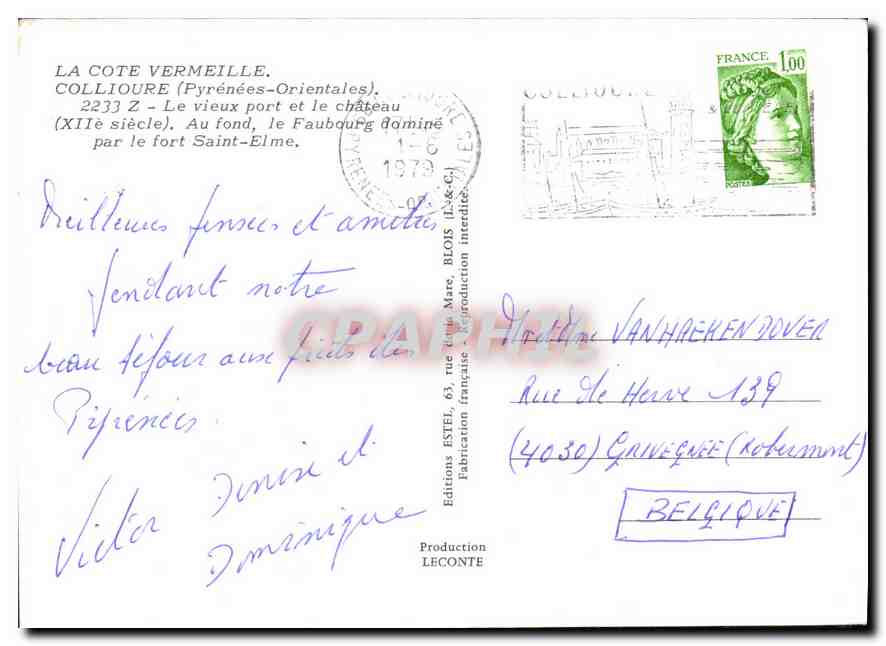 LA COTE VERMEILLE.
COLLIOURE (Pyrénées-Orientales).
2233 Z - Le vieux port et le château
(XIIè siècle). Au fond, le Faubourg dominé
par le fort Saint-Elme.
FRANCE 1,00
POSTES
COLLIOURE
1979
Meilleures pensées et amitiés
pendant notre
beau séjour aux pieds des
Pyrénées.
Victor Denise et
Dominique
Editions ESTEL, 63, rue Mare, BLOIS (L.-&-C.)
Fabrication française - Reproduction interdite.
CPAPHIL
Mr et Mme VANHAEKENDOVER
Rue de Herve 139
(4030) GRIVEGNEE (Robermont)
BELGIQUE
Production
LECONTE